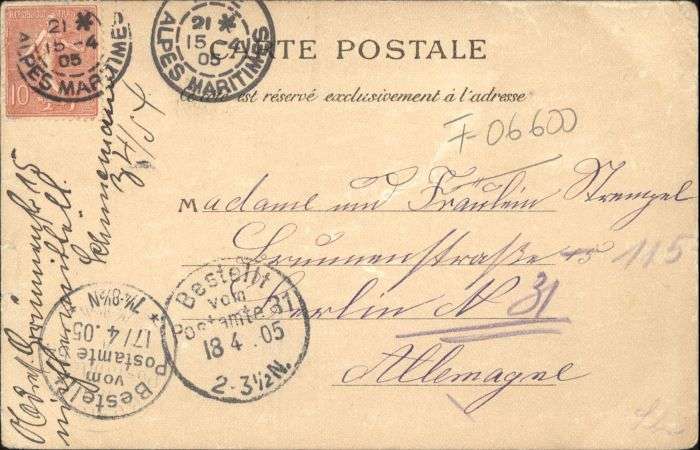 21 *
15 -4
05
ALPES MARITIMES
10
21 *
15 -4
05
ALPES MARITIMES
CARTE POSTALE
Ce côté est réservé exclusivement à l'adresse
F 06600
Madame und Fräulein Strempel
Brunnenstraße 115
Berlin N 31
Allemagne
Bestellt
vom
Postamte 31
18 4 . 05
2-3½N.
Bestellt
vom
Postamte
17/4 .05
7¼-8½N
15
Schünemann